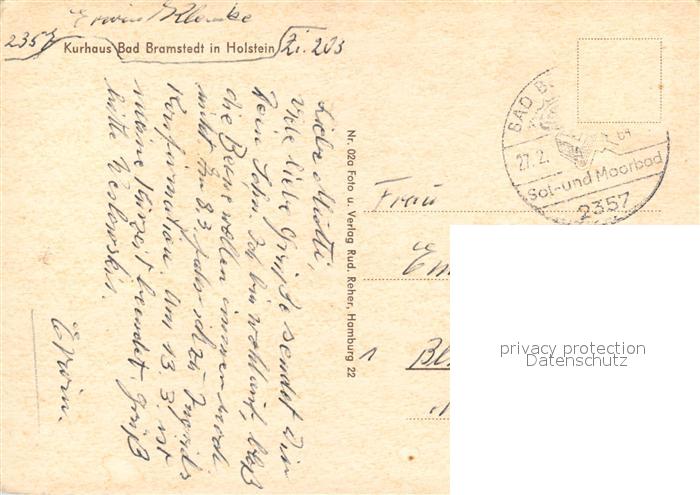 Erwin Klemke
2357 Kurhaus Bad Bramstedt in Holstein Zi. 203
Liebe Mutti,
Viele liebe Grüße sendet Dir
Dein Sohn. Ich bin wohlauf, bloß
die Beine wollen immer noch
nicht. Am 8.3. fahr ich zu Ingrids
Konfirmation. Am 13.3. ist
meine Kurzeit beendet. Gruß
bitte
Erwin.
Nr. 02a Foto u. Verlag Rud. Reher, Hamburg 22
BAD B
27.2. 64
Sol- und Moorbad
2357
Frau
Em
1 Bl
privacy protection
Datenschutz